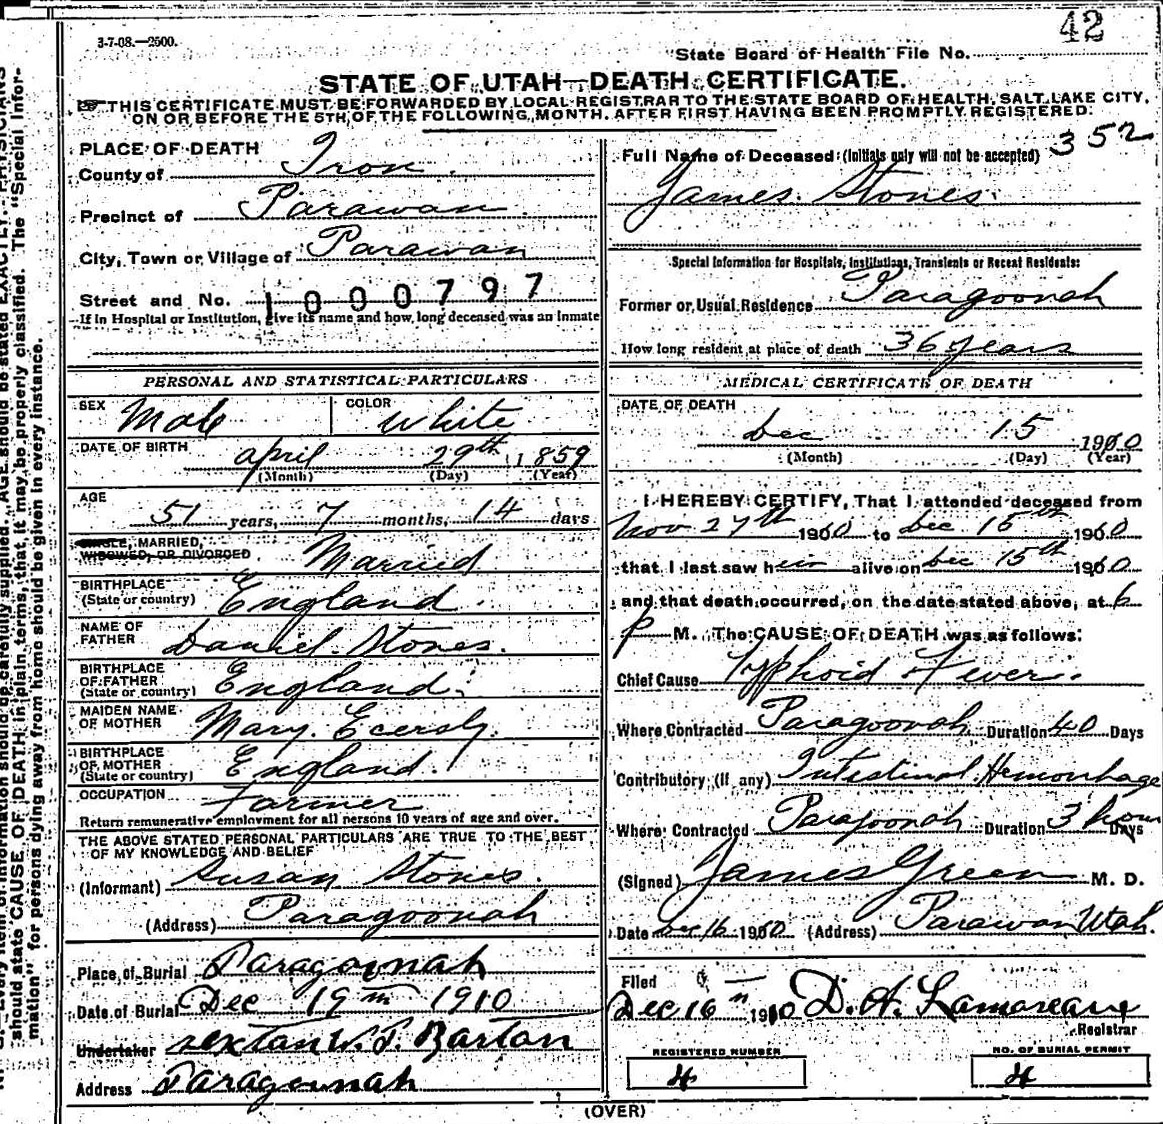 3-7-08.—2500.
42
State Board of Health File No.
STATE OF UTAH—DEATH CERTIFICATE.
THIS CERTIFICATE MUST BE FORWARDED BY LOCAL REGISTRAR TO THE STATE BOARD OF HEALTH, SALT LAKE CITY,
ON OR BEFORE THE 5TH OF THE FOLLOWING MONTH. AFTER FIRST HAVING BEEN PROMPTLY REGISTERED.
PLACE OF DEATH
County of Iron
Precinct of Parawan
City, Town or Village of Parawan
Street and No. 1000797
If in Hospital or Institution, give its name and how long deceased was an inmate
PERSONAL AND STATISTICAL PARTICULARS
SEX Male COLOR White
DATE OF BIRTH April 29th 1859
(Month) (Day) (Year)
AGE
51 years, 7 months, 14 days
SINGLE, MARRIED,
WIDOWED, OR DIVORCED Married
BIRTHPLACE
(State or country) England
NAME OF
FATHER Daniel Stones.
BIRTHPLACE
OF FATHER
(State or country) England.
MAIDEN NAME
OF MOTHER Mary Ecersly.
BIRTHPLACE
OF MOTHER
(State or country) England.
OCCUPATION Farmer
Return remunerative employment for all persons 10 years of age and over.
THE ABOVE STATED PERSONAL PARTICULARS ARE TRUE TO THE BEST
OF MY KNOWLEDGE AND BELIEF
(Informant) Susan Stones.
(Address) Paragoonah
Place of Burial Paragoonah
Date of Burial Dec 19th 1910
Undertaker sextan W. P. Barton
Address Paragoonah
Full Name of Deceased: (Initials only will not be accepted) 352
James Stones
Special Information for Hospitals, Institutions, Transients or Recent Residents:
Former or Usual Residence Paragoonah
How long resident at place of death 36 years
MEDICAL CERTIFICATE OF DEATH
DATE OF DEATH
Dec 15 1910
(Month) (Day) (Year)
I HEREBY CERTIFY, That I attended deceased from
Nov 27th 1910 to Dec 15th 1910
that I last saw him alive on Dec 15th 1910
and that death occurred, on the date stated above, at 6
P M. The CAUSE OF DEATH was as follows:
Chief Cause Typhoid Fever.
Where Contracted Paragoonah Duration 40 Days
Contributory (if any) Intestinal Hemorrhage
Where Contracted Paragoonah Duration 3 hours Days
(Signed) James Green M. D.
Date Dec 16 1910 (Address) Parawan Utah.
Filed
Dec 16th 1910 D. A. Lamoreaux
Registrar
REGISTERED NUMBER
4
NO. OF BURIAL PERMIT
4
(OVER)
should state CAUSE OF DEATH in plain terms, that it may be properly classified. The "Special Infor-
mation" for persons dying away from home should be given in every instance.